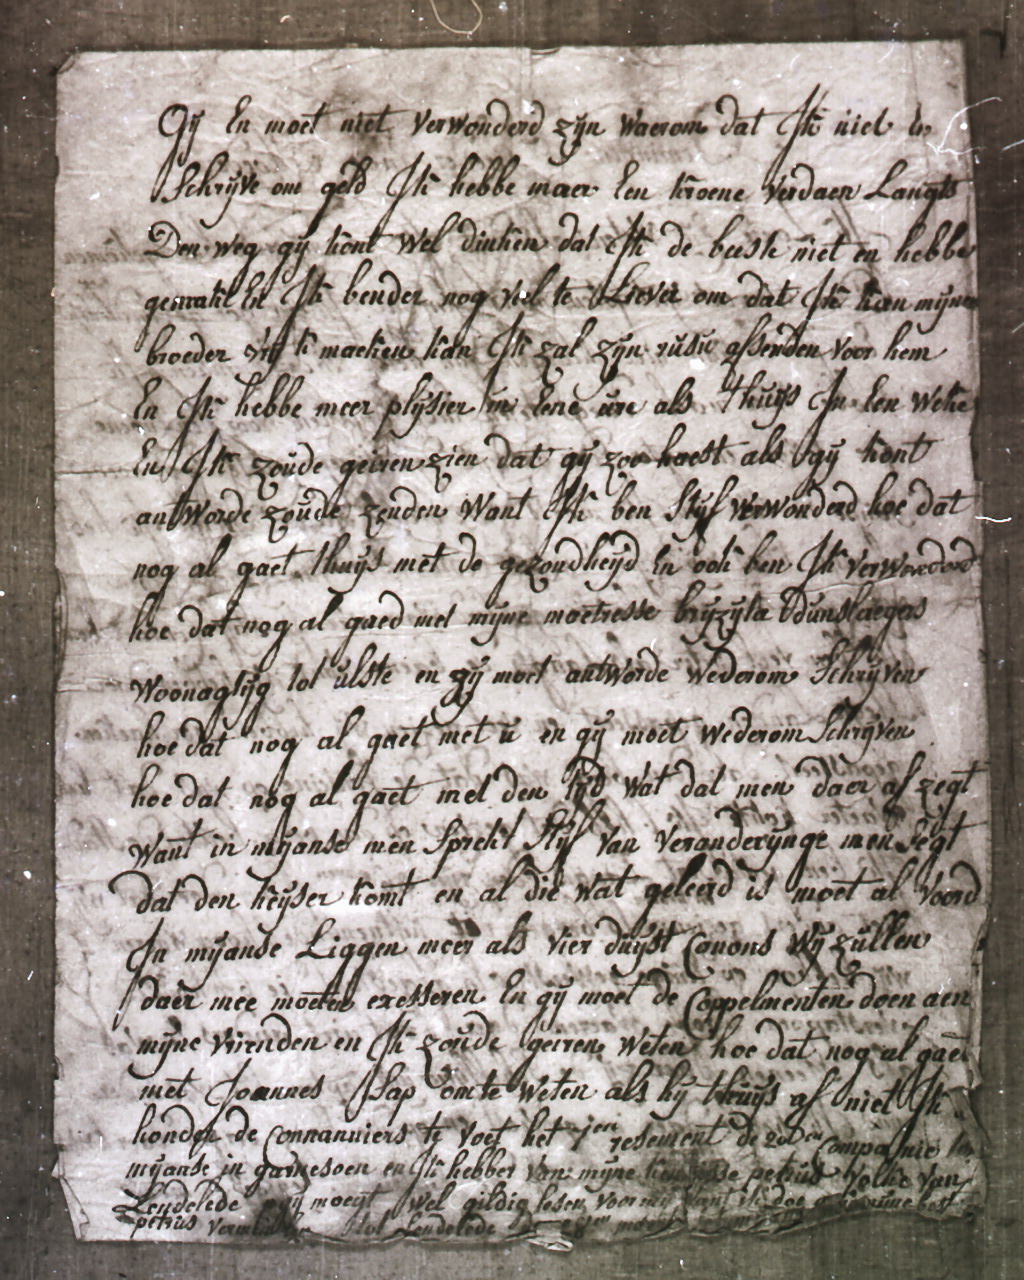 Gij En moet niet Verwonderd zijn waerom dat Ik niet en
Schrijve om geld Ik hebbe maer Een kroene Verdaen Langts
Den weg gij kont wel dinken dat Ik de beesk niet en hebbe
gemakt En Ik bender nog viel te Liever om dat Ik kan mijnen
broeder vrij maeken kan Ik zal zijn rusu afsenden voor hem
En Ik hebbe meer plysier in Eene ure als thuys In Een weke
En Ik zoude geiren zien dat gij zoo haest als gij kont
andworde zoude zenden Want Ik ben Stijf verwonderd hoe dat
nog al gaet thuys met de gezondheyd En ook ben Ik verwonderd
hoe dat nog al gaed met mijne maetresse brijzyta Odunslaegers
Woonagtijg tot ulste en gij moet antworde wederom Schrijven
hoe dat nog al gaet met u en gij moet wederom Schrijven
hoe dat nog al gaet met den tijd wat dat men daer af zegt
want in mijanse men Sprekt Stijf van Veranderijnge men Segt
dat den keijser komt en al die wat geleerd is moet al voord
In mijanse Liggen meer als vier duijst Canons Wij zullen
daer mee moeten exesseren En gij moet de Coppelmenten doen aen
mijne vrienden en Ik zoude geiren weten hoe dat nog al gaet
met Joannes Sap om te weten als hij thuys af niet Ik
honder de Connanniers te voet het 1en resement de 20en Compagnie
mijanse in garnesoen en Ik hebbe van mijne petrus Volke van
Lendelede gij moeyt wel gildig lesen voor mij
petrus tot Lendelede